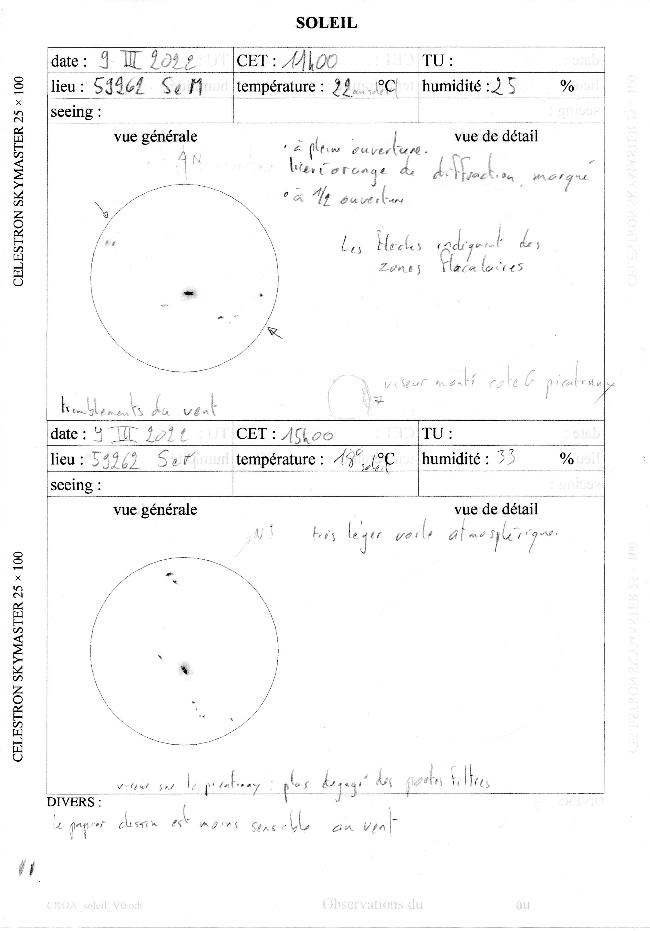 SOLEIL
date : 9 III 2022 CET : 11h00 TU :
lieu : 59262 SeM température : 22 au soleil °C humidité : 25 %
seeing :
vue générale vue de détail
N
• à pleine ouverture.
orange de diffraction marqué
• à 1/2 ouverture
Les flèches indiquent des
zones faculaires
viseur monté côté G
tremblements du vent
CELESTRON SKYMASTER 25 × 100
date : 9 III 2022 CET : 15h00 TU :
lieu : 59262 SeM température : 18° soleil °C humidité : 33 %
seeing :
vue générale vue de détail
N
très léger voile atmosphérique.
viseur sur le : plus dégagé des portes filtres
CELESTRON SKYMASTER 25 × 100
DIVERS :
le papier dessin est moins sensible au vent
CROA_soleil_V0.odt Observations du au